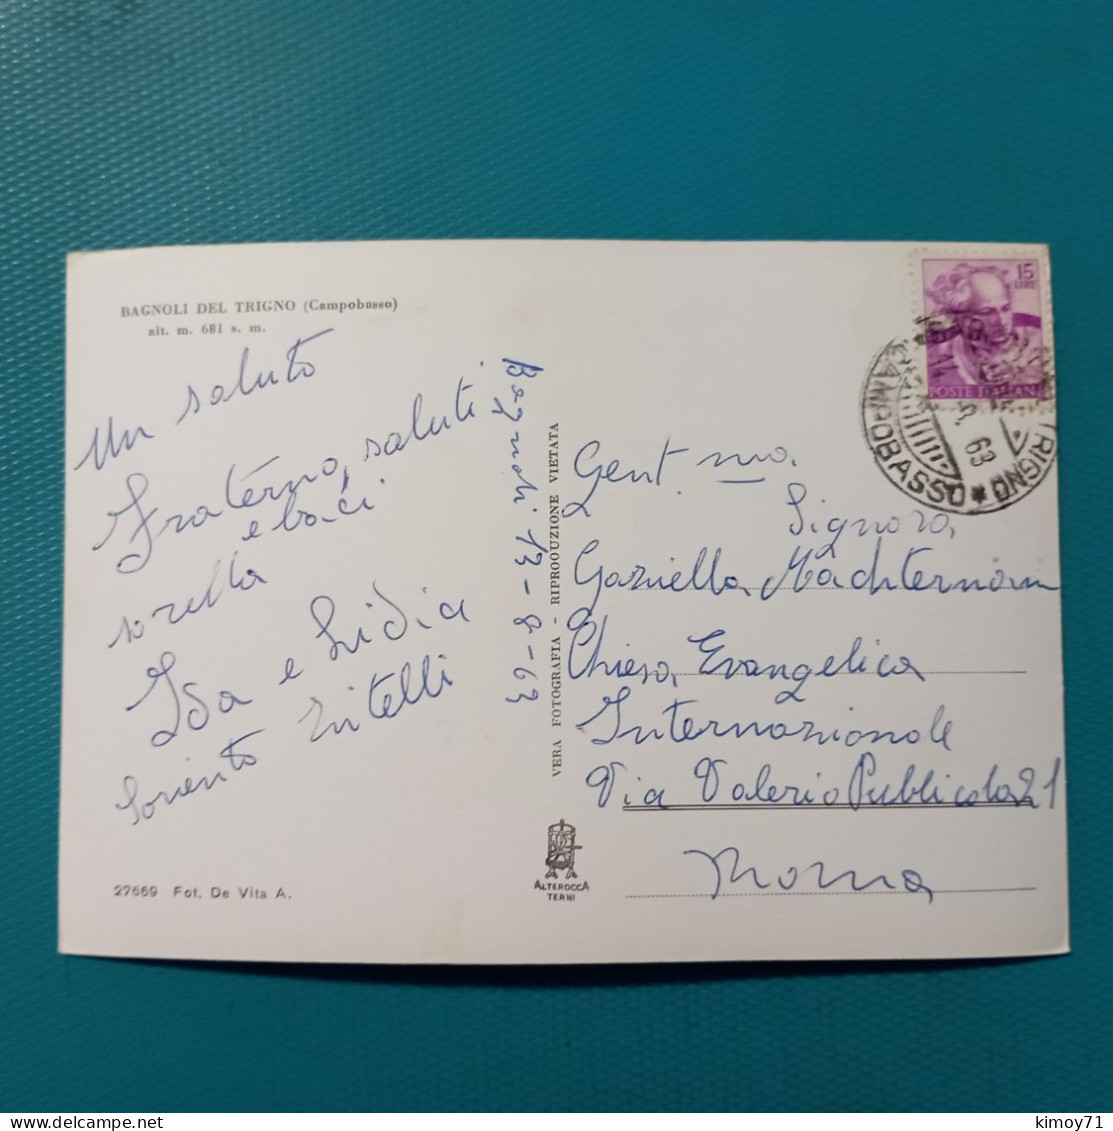 BAGNOLI DEL TRIGNO (Campobasso)
alt. m. 681 s. m.
Un saluto
Fraterno, saluti
e baci
sorella
Ida e Lidia
Zitelli
Bagnoli 13-8-63
VERA FOTOGRAFIA - RIPRODUZIONE VIETATA
15
LIRE
POSTE ITALIANE
TRIGNO * CAMPOBASSO
63
Gent.ma
Signora
Chiesa Evangelica
Internazionale
Via Valerio Publicola 21
Roma
ALTEROCCA
TERNI
27669 Fot. De Vita A.
kimoy71